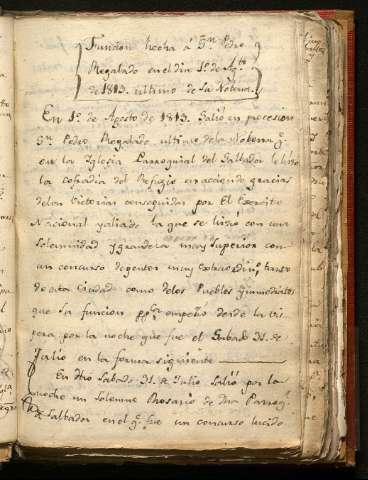 Funcion hecha á Sn. Pedro
Regalado en el dia 1º. de Agto.
de 1813. ultimo de su Novena.
En 1º. de Agosto de 1813. Salió en procesion
Sn. Pedro Regalado, ultimo de la Nobena q.
en la Iglesia Parroquial del Salbador le hizo
la cofradia del Refugio en acción de gracias
delas Victorias conseguidas por El Exercito
Nacional y aliado la que se hizó con una
solemnidad y grandeza muy superior con
un concurso de gentes muy extraordino. tanto
de esta Ciudad como delos Pueblos ynmediatos
que la funcion empeño desde la vis
pera por la noche que fue el Sabado 31. de
Julio en la forma siguiente
En dho Sabado 31. de Julio Salió por la
noche un solemne Rosario de dha Parroqa.
de Salbador en el q. fue un concurso lucido